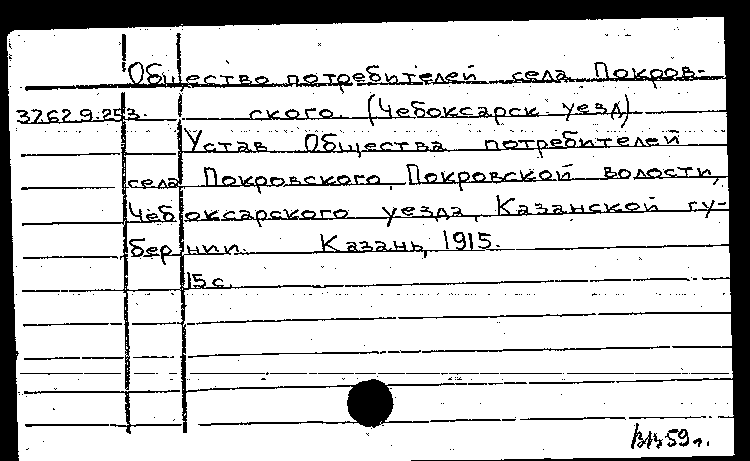 Общество потребителей села Покров-
37.62.9.253. ского. (Чебоксарск уезд)
Устав Общества потребителей
села Покровского, Покровской волости,
Чебоксарского уезда, Казанской гу-
бернии. Казань, 1915.
15 с.